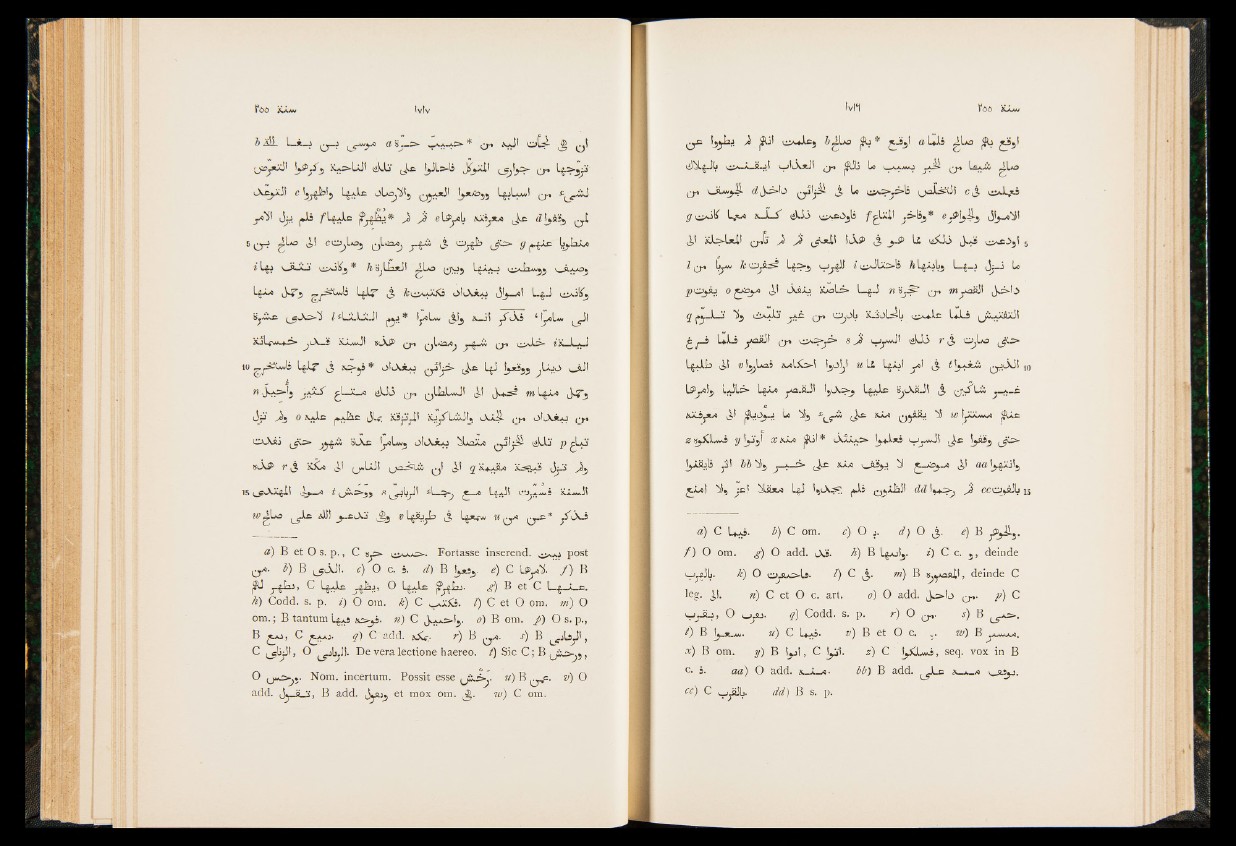 سنة ٢٥٥ ١٧١٦
اوقع بهم صالح فلما a اوقع* بهم صالح b وعلمت انهم لم يطووا عن
صالح شيعا من الخبر بسبب ما نالهم من العذاب ايقنت بالهلاك
فعملت c فى التخلّص فاخرجت ما فى الخزائن d داخل الجوسق من
الاموال والجواهر e *وفاخر المتاع f فاودعت ذلك كلّه مع ما كانت g
5 اودعت قبل ذلك مما هو فى هذا المعنى ثم لم تأمن المعاجلة الى
ما نزل بها وبابنها h فاحتالت i للهرب وجها فحفرت k سربا من l
داخل القصر m من حجرة n لها خاصّة ينفذ الى موضع o يفوت p
التفتيش فلما علمت بالحادثة بادرت من غير تلبّث ولا تلوّم q
حتى صارت r فى ذلك السرب ثم s خرجت من القصر فلما فرغ
10 الذين شغبوا t فى امر ابنها مما u ارادوا احكامه فصاروا v الى طلبها
غير شاكّين فى القدرة عليها وجدوا القصر منها خاليا وامرها
عنهم مستترا w لا يقفون منه على شىء ولا ما يؤدّيهم الى معرفته
حتى وقفوا على السرب فعلموا حينئذ *انهم منه x اوتوا y فسلكوه z
وانتهوا aa الى موضع لا يوقف منه على خبر ولا bb اثر فايقنوا
15 بالفوت cc ثم رجموا dd الظنون فلم يجدوا لها معقلا اعزّ ولا امنع
a) C فيها. b) C om. c) O ب. d) O فى. e) B والجواهر.
f) O om. g) O add. قد. h) B وابنها. i) C c. و, deinde
بالهرب. k) O فاحتفرت. l) C فى. m) B القصره, deinde C
leg. الى. n) C et O c. art. o) O add. من داخل. p) C
q) Codd. s. p. r) O من. s) B حتى.
u) C فيها. v) B et O c. و.
x) B om. y) B اتوا, C اتوا. z) C فسلكوا, seq. vox in B
c. ف. aa) O add. منه. bb) B add. يوقف منه على.
cc) C بالهرب. dd) B s. p.
١٧١٧ سنة ٢٥٥
ان هى لجأت اليه من *حبيب حرّة a موسى بن بغا الله b
تزوّجها من جوارى المتوكّل فاحالوا على تلك الناحية وكرهوا التعرّض
لشىء من اسبابها ووضعوا العيون والارصاد عليها واظهروا c التوعّد
لمن وقفوا d على معرفته بامرها e ثم لم *يُظهرهم عليها f فلم يزل الامر
5 منطويا عنهم g حتى ظهرت فى شهر رمضان وصارت c الى صالح بن
وصيف ووسطت بينها وبين صالح العطّارة h *وكانت تثق بها i
وكانت لها اموال ببغداد فكتبت k فى حملها فاستخرج وحمل منها
الى سامرا، فذكر انه وافى سامرا *يوم الثلثاء l لاحدى عشرة
ليلة i خلت من شهر رمضان من هذه السنة قدر خمسمائة
10 الف دينار ووقعوا لها على خزائن ببغداد *فوجّه فى حملها فاستخرج
وحمل منها m فحمل الى السلطان من ذلك متاع كثير وأُحيل n
من ببغداد من الجند والشاكريّة المرتزقة بمال عظيم عليه o ولم تزل
تباع p تلك الخزائن متّصلا ببغداد وسامرا عدّة شهور حتى نفدت
ولم تزل قبيحة مقيمة q الى ان شخص الناس الى مكّة فى r هذه
15 السنة فسُيّرت اليها مع رجاء الربابى s ووحش t مولى المهتدى
فذكر *عن من u سمعها فى طريقها v وهى تدعو الله على صالح w
a) B et O s. p., C خبيث حره. Fortasse inserend. بنت post
من. b) B الذى. c) O c. ف. d) B وقعوا. e) C لامرها. f) B
g) B et C عنها.
h) Codd. s. p. i) O om. k) C فكتب. l) C et O om. m) O
om.; B tantum فوجه فيها. n) C واحتمل. o) B om. p) O s. p.,
q) C add. بمكة. r) B من.
De vera lectione haereo. t) Sic C; B
O ورحس. Nom. incertum. Possit esse رخّش. u) B عمن. v) O
add. تقول, B add. وتقول et mox om. وهى. w) C om.